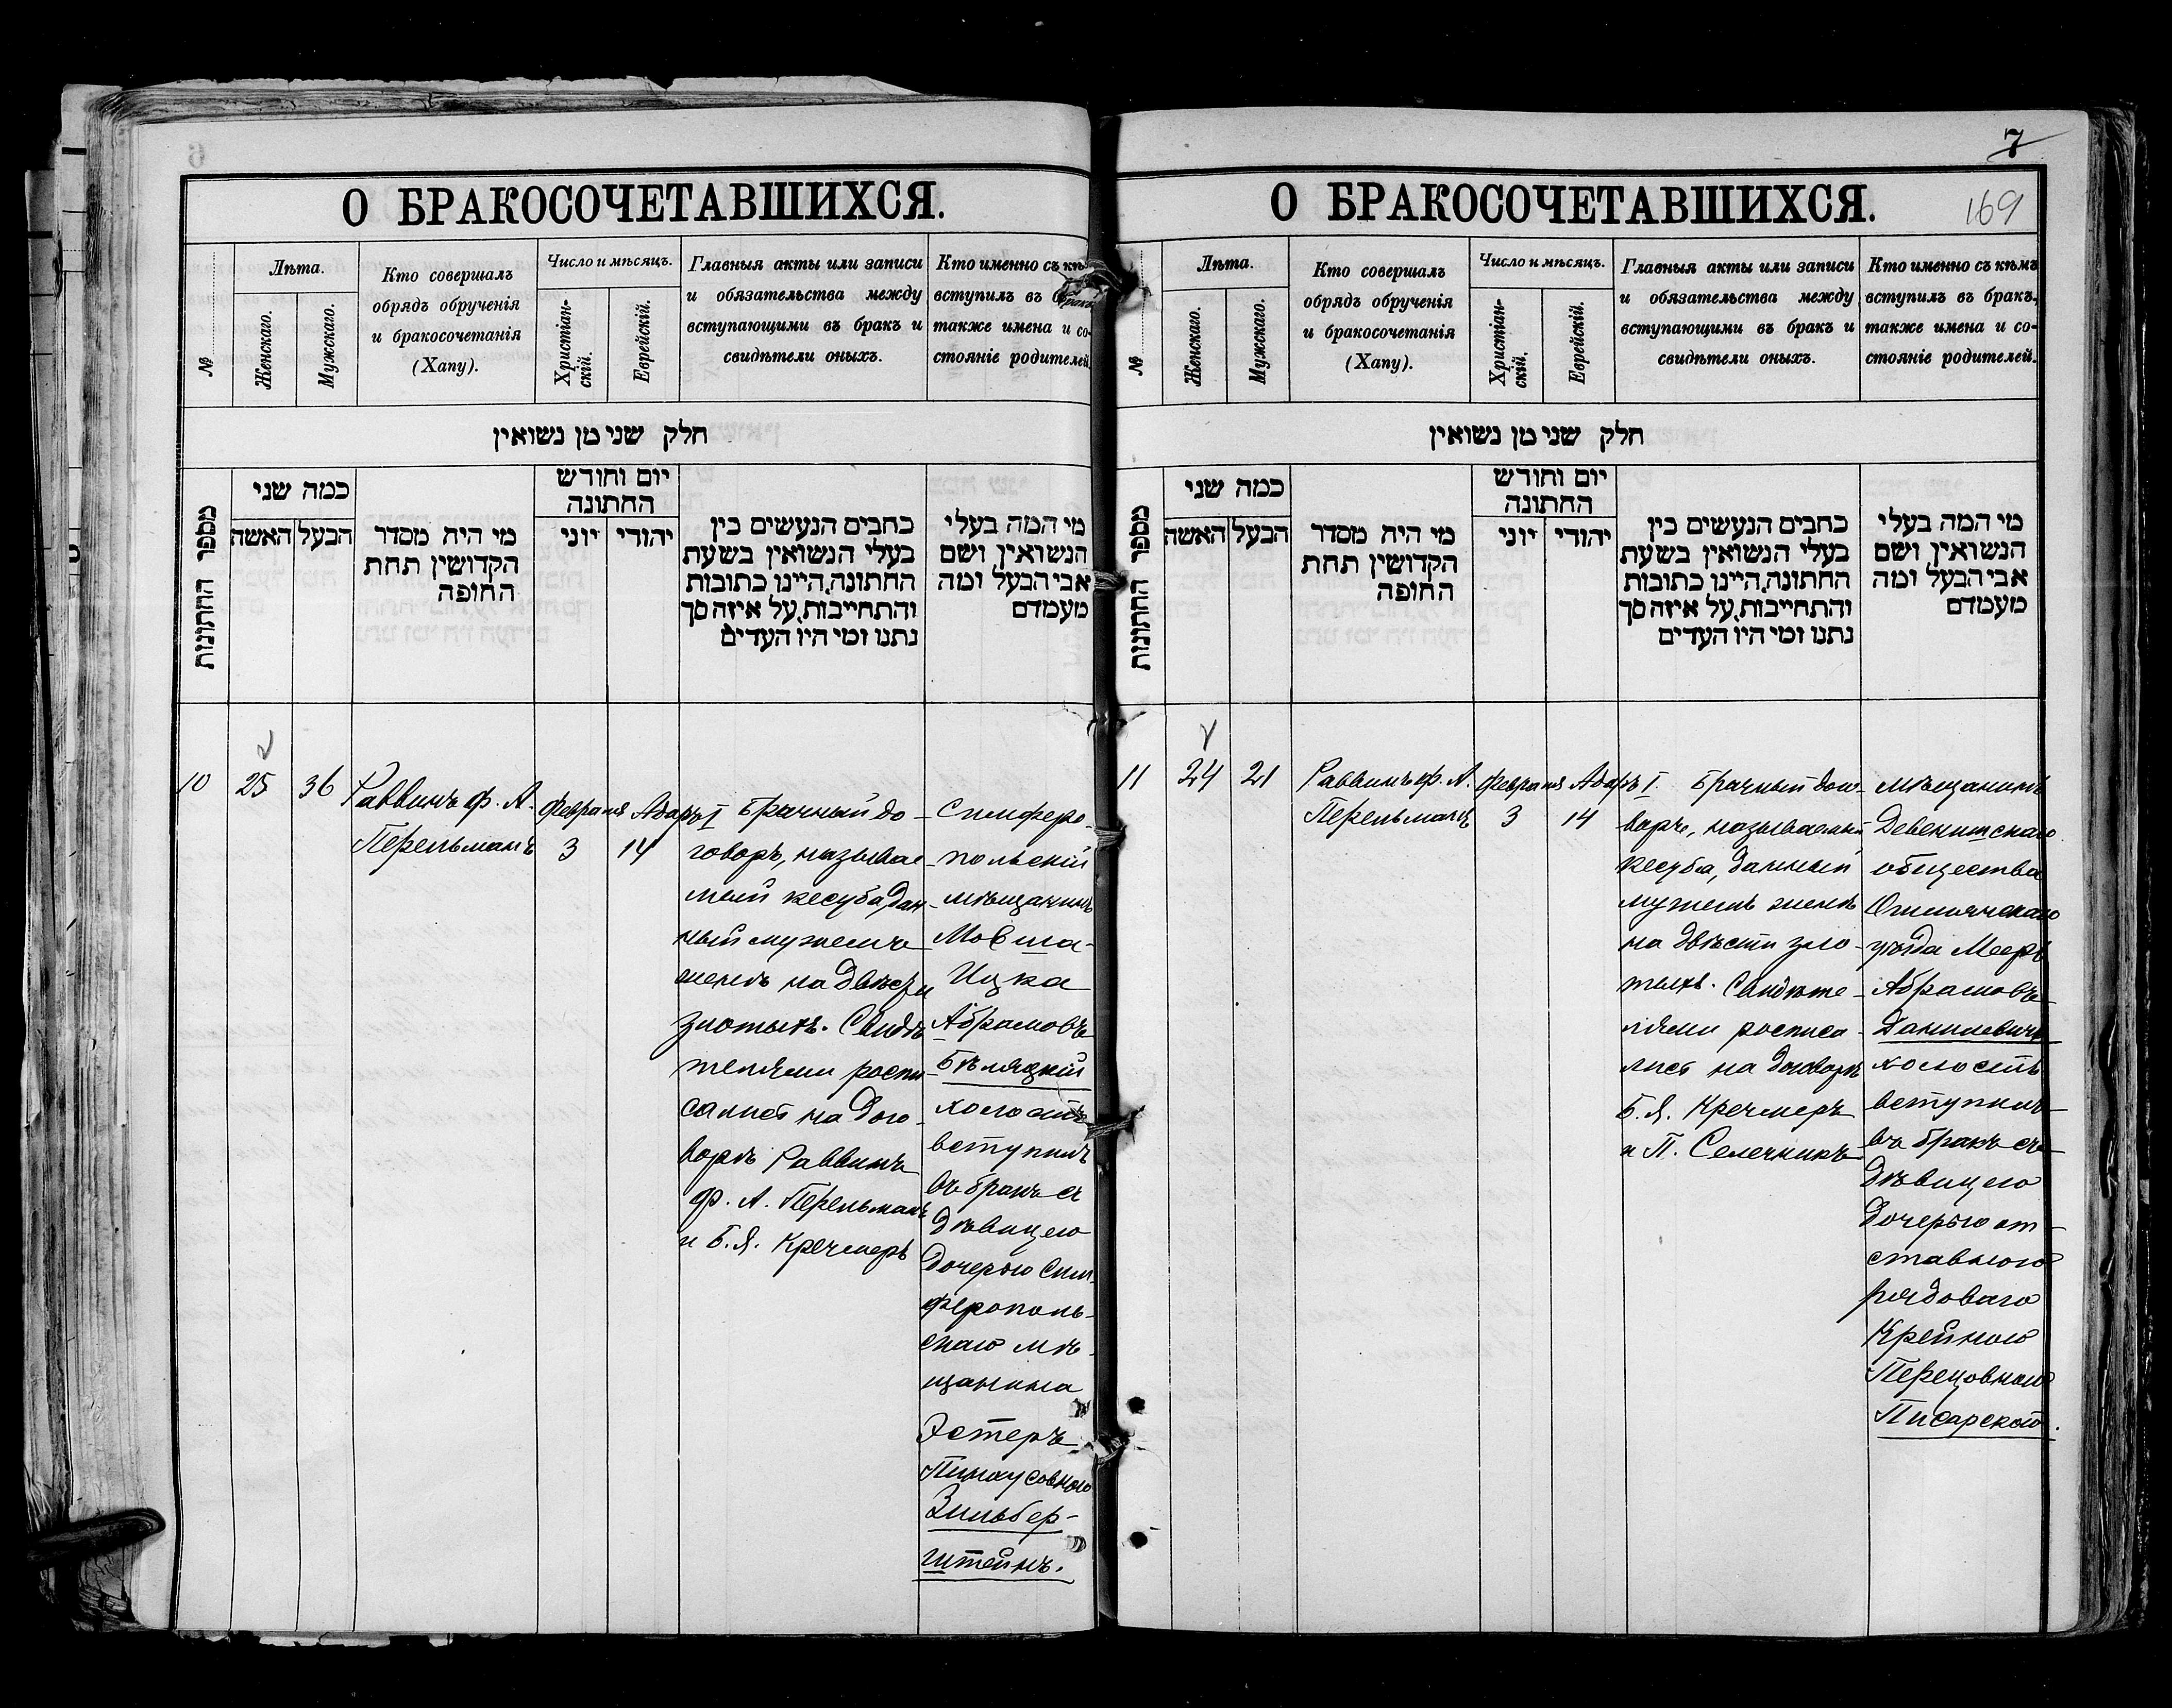 6
О БРАКОСОЧЕТАВШИХСЯ.
№
Лѣта.
Женскаго.
Мужскаго.
Кто совершалъ
обрядъ обрученія
и бракосочетанія
(Хапу).
Число и мѣсяцъ.
Христіан-
скій.
Еврейскій.
Главныя акты или записи
и обязательства между
вступающими въ бракъ и
свидѣтели оныхъ.
Кто именно съ кѣмъ
вступилъ въ бракъ
также имена и со-
стояніе родителей.
חלק שני מן נשואין
מספר החתונות
כמה שני
הבעל
האשה
מי היה מסדר
הקדושין תחת
החופה
יום וחודש
החתונה
יהודי
יוני
כתבים הנעשים בין
בעלי הנשואין בשעת
החתונה, היינו כתובות
והתחייבות, על איזה סך
נתנו ומי היו העדים
מי המה בעלי
הנשואין ושם
אבי הבעל ומה
מעמדם
10
25
36
Раввинъ Ф. А.
Перельманъ
Февраля
3
Адаръ I
14
Брачный до-
говоръ, называе-
мый кесуба, дан-
ный мужемъ
женѣ на двѣсти
злотыхъ. Свидѣ-
телями распи-
сались на дого-
ворѣ Раввинъ
Ф. А. Перельманъ
и Б. Я. Кречмеръ
Симферо-
польскій
мѣщанинъ
Мовша-
Ицка
Абрамовъ
Бѣляцкій
холостъ
вступилъ
въ бракъ съ
дѣвицею
дочерью Сим-
ферополь-
скаго мѣ-
щанина
Эстеръ
Пинхусовною
Зильбер-
штейнъ.
7
169
О БРАКОСОЧЕТАВШИХСЯ.
№
Лѣта.
Женскаго.
Мужскаго.
Кто совершалъ
обрядъ обрученія
и бракосочетанія
(Хапу).
Число и мѣсяцъ.
Христіан-
скій.
Еврейскій.
Главныя акты или записи
и обязательства между
вступающими въ бракъ и
свидѣтели оныхъ.
Кто именно съ кѣмъ
вступилъ въ бракъ,
также имена и со-
стояніе родителей.
חלק שני מן נשואין
מספר החתונות
כמה שני
הבעל
האשה
מי היה מסדר
הקדושין תחת
החופה
יום וחודש
החתונה
יהודי
יוני
כתבים הנעשים בין
בעלי הנשואין בשעת
החתונה, היינו כתובות
והתחייבות, על איזה סך
נתנו ומי היו העדים
מי המה בעלי
הנשואין ושם
אבי הבעל ומה
מעמדם
11
24
21
Раввинъ Ф. А.
Перельманъ
Февраля
3
Адаръ I.
14
Брачный дого-
воръ, называемый
кесуба, данный
мужемъ женѣ
на двѣсти зло-
тыхъ. Свидѣте-
лями росписа-
лись на договорѣ
Б. Я. Кречмеръ
и П. Селечникъ
Мѣщанинъ
Девенитскаго
общества
Ошмянскаго
уѣзда Мееръ
Абрамовъ
Данилевичъ
холостъ
вступилъ
въ бракъ съ
дѣвицею
дочерью от-
ставного
рядового
Крейною
Перецовною
Писарской.